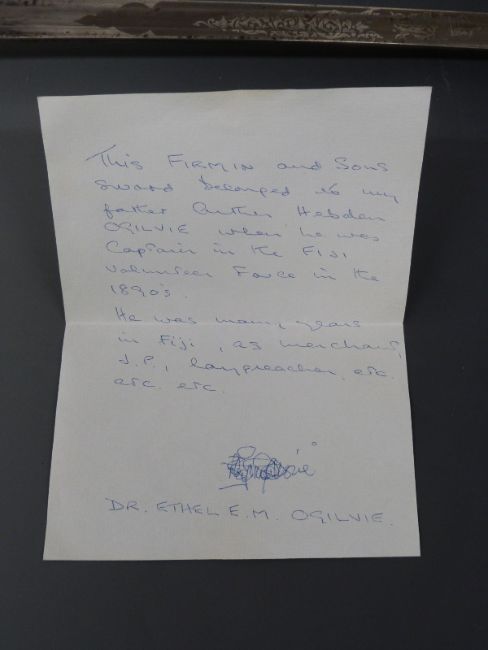 This FIRMIN and Sons
sword belonged to my
father Arthur Hebden
OGILVIE when he was
Captain in the FIJI
Volunteer Force in the
1890's.
He was many years
in Fiji, as merchant,
J.P., laypreacher, etc.
etc. etc.
DR. ETHEL E.M. OGILVIE.